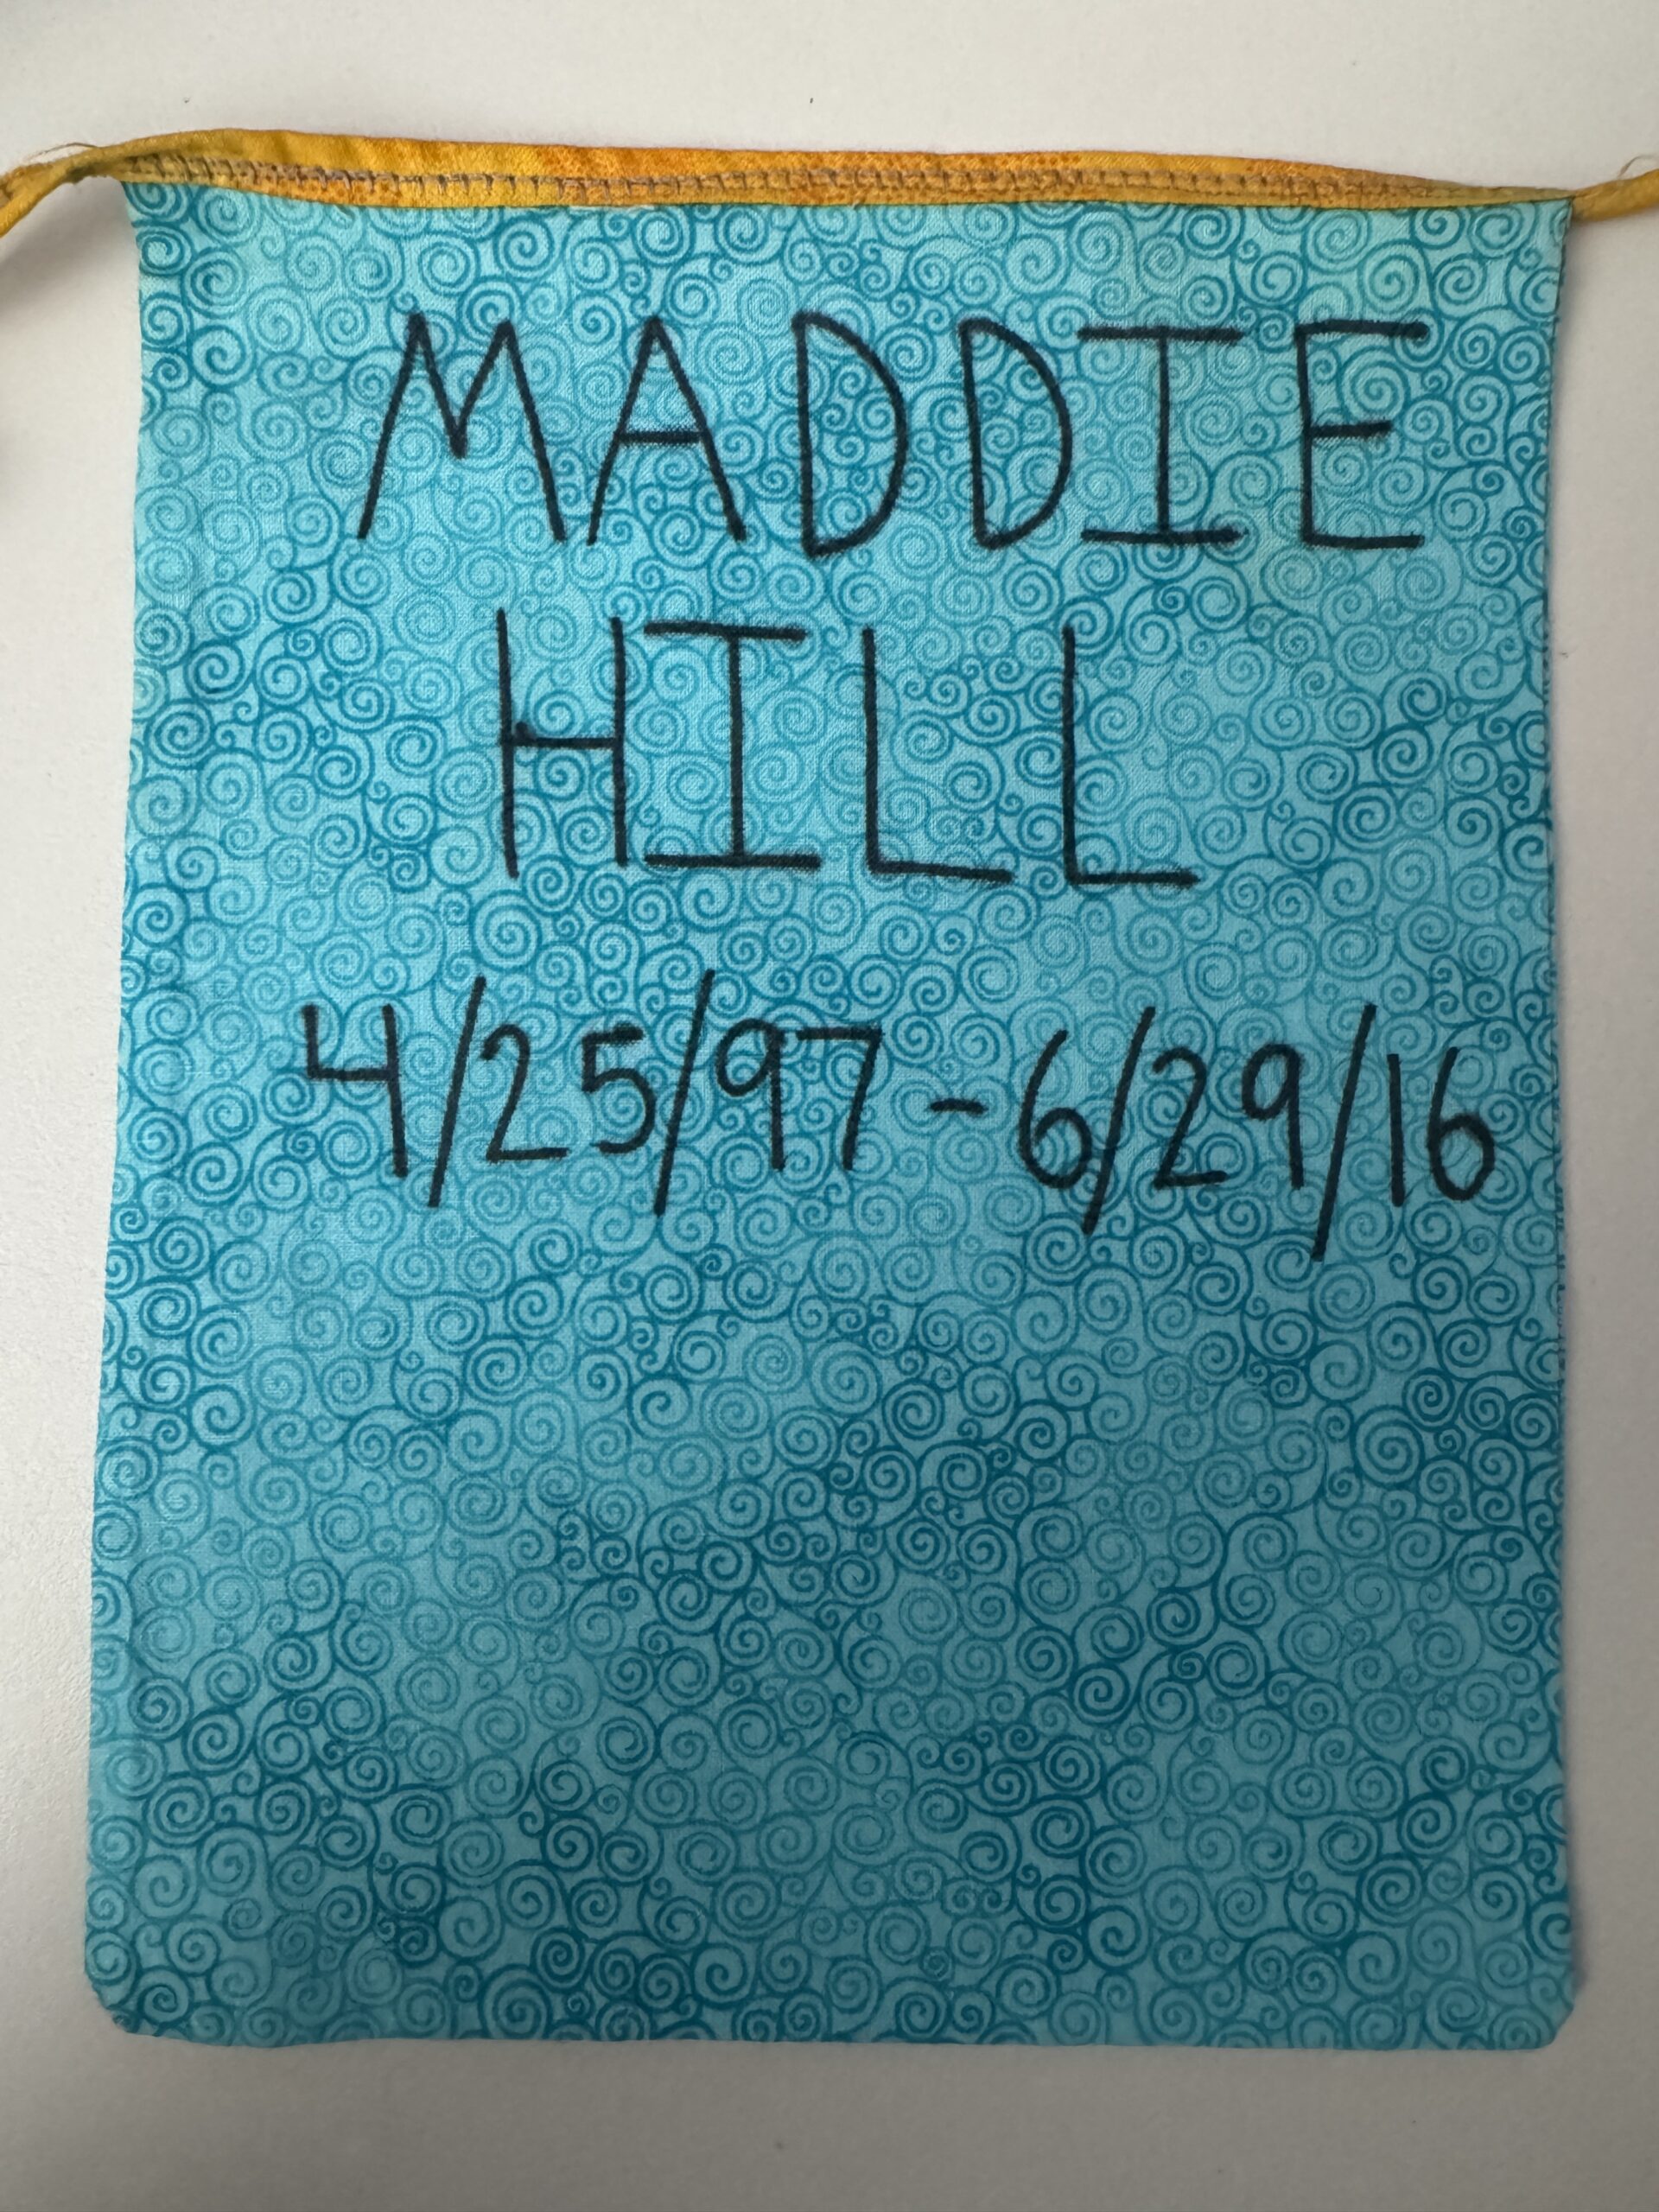 MADDIE
HILL
4/25/97 - 6/29/16